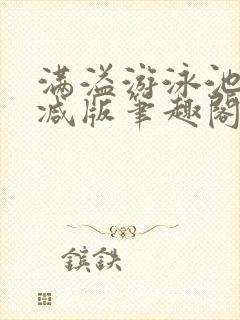 满溢游泳池
减版笔趣阁
镔铁